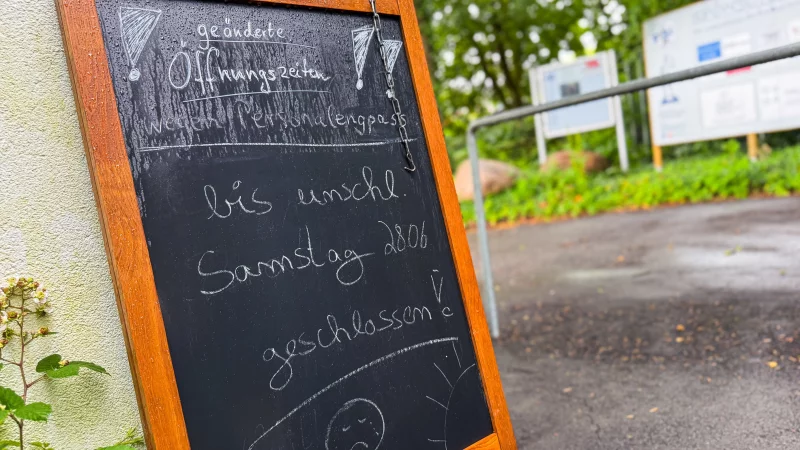 geänderte
Öffnungszeiten
wegen Personalengpass
bis einschl.
Samstag 28.06
geschlossen!